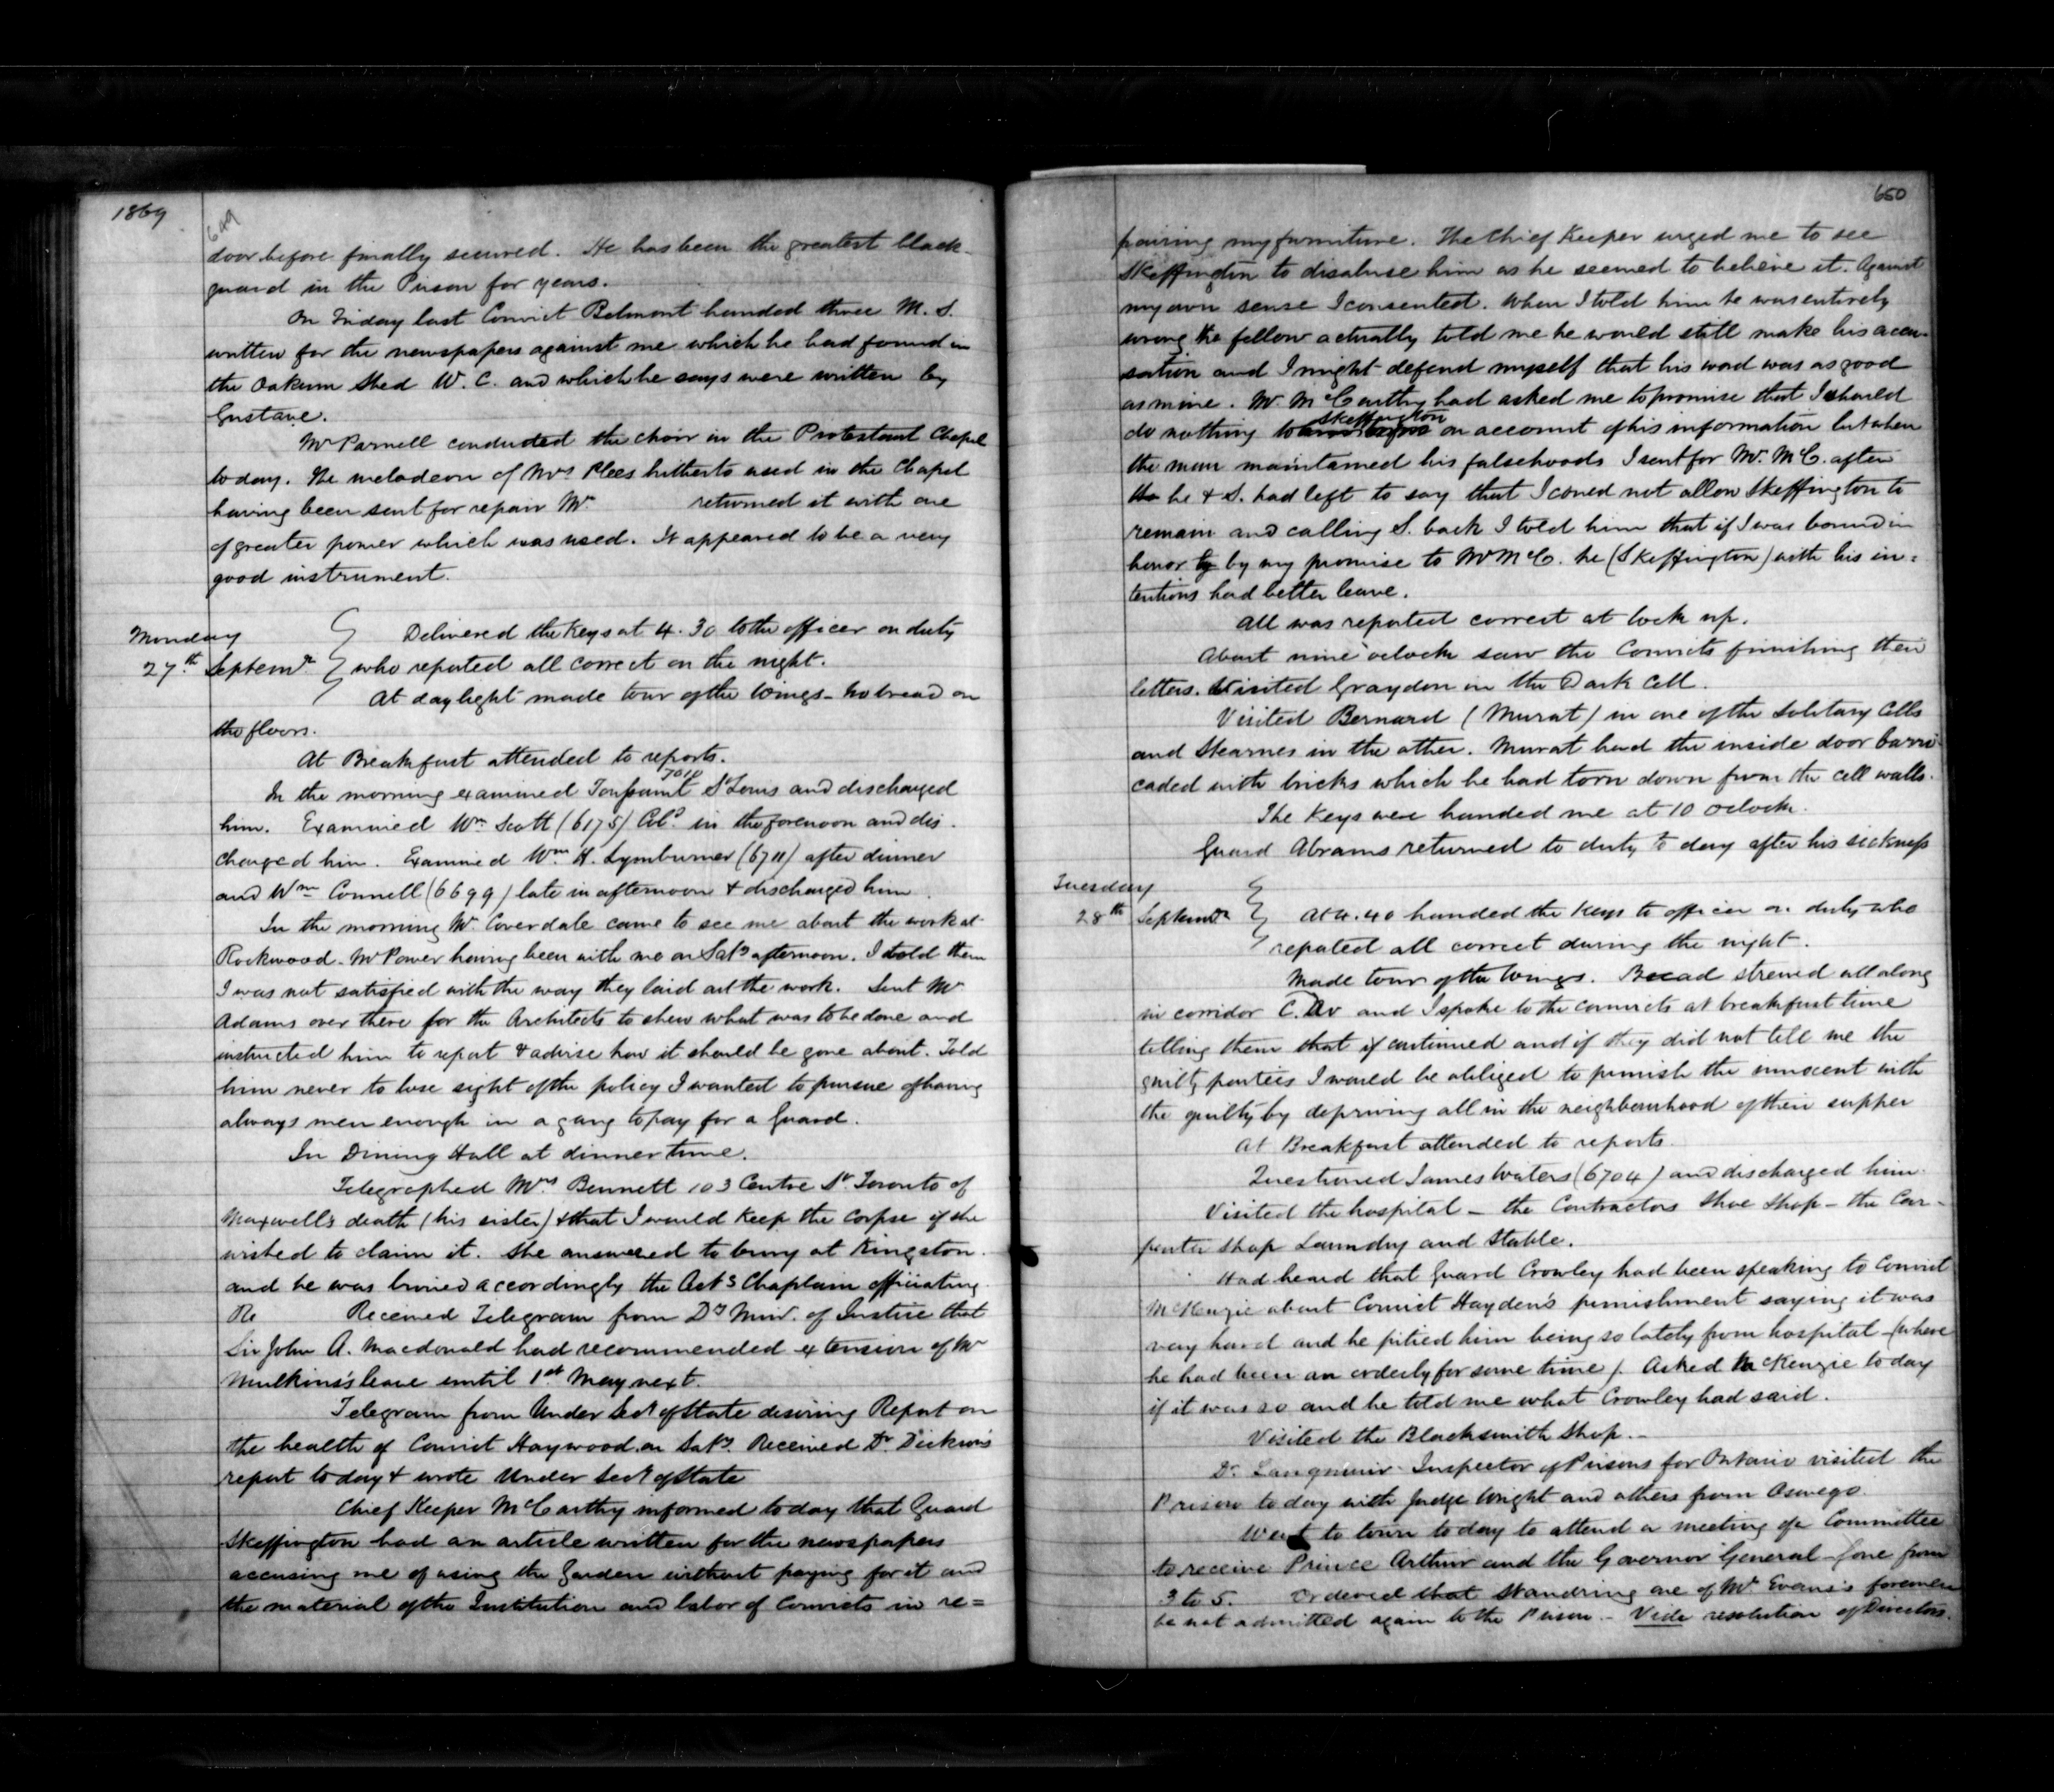 1869
649
door before finally secured. He has been the greatest black-
guard in the Prison for years.
On Friday last Convict Belmont handed three M.S.
written for the newspapers against me which he had found in
the Oakum Shed W.C. and which he says were written by
Gustave.
Mr Parnell conducted the choir in the Protestant Chapel
today. The melodeon of Mrs Plees hitherto used in the Chapel
having been sent for repair Mr. returned it with one
of greater power which was used. It appeared to be a very
good instrument.
Monday
27th Septemr.
Delivered the Keys at 4.30 to the officer on duty
who reported all correct on the night.
At daylight made tour of the Wings - No bread on
the floors.
At Breakfast attended to reports.
In the morning examined Toussaint St Louis and discharged
him. Examined Wm Scott (6175) Cold. in the forenoon and dis-
charged him. Examined Wm. H. Lymburner (6711) after dinner
and Wm Connell (6699) late in afternoon & discharged him.
In the morning Mr. Coverdale came to see me about the work at
Rockwood - Mr Power having been with me on Saty afternoon. I told them
I was not satisfied with the way they laid out the work. Sent Mr
Adams over there for the Architects to shew what was to be done and
instructed him to report & advise how it should be gone about. Told
him never to lose sight of the policy I wanted to pursue of having
always men enough in a gang to pay for a Guard.
In Dining Hall at dinner time.
Telegraphed Mrs Bennett 103 Centre St. Toronto of
Maxwell's death (his sister) & that I would Keep the Corpse if she
wished to claim it. She answered to bury at Kingston.
and he was buried accordingly the Actg Chaplain officiating.
Re Received Telegram from Dy Minr. of Justice that
Sir John A. Macdonald had recommended extension of Mr
Mulkins's leave until 1st May next.
Telegram from Under Secy of State desiring Report on
the health of Convict Haywood on Saty. Received Dr. Dickson's
report today & wrote Under Secy of State
Chief Keeper McCarthy informed today that Guard
Skeffington had an article written for the newspapers
accusing me of using the Garden without paying for it and
the material of the Institution and labor of Convicts in re=
650
pairing my furniture. The Chief Keeper urged me to see
Skeffington to disabuse him as he seemed to believe it. Against
my own sense I consented. When I told him he was entirely
wrong the fellow actually told me he would still make his accu-
sation and I might defend myself that his word was as good
as mine. Mr. McCarthy had asked me to promise that I should
do nothing to Skeffington on account of his information but when
the man maintained his falsehoods I sent for Mr. McC. after
he & S. had left to say that I could not allow Skeffington to
remain and calling S. back I told him that if I was bound in
honor by my promise to Mr McC. he (Skeffington) with his in=
tentions had better leave.
All was reported correct at lock up.
About nine oclock saw the Convicts finishing their
letters. Visited Graydon in the Dark Cell.
Visited Bernard (Murat) in one of the Solitary Cells
and Stearnes in the other. Murat had the inside door barri-
caded with bricks which he had torn down from the cell walls.
The Keys were handed me at 10 oclock.
Guard Abrams returned to duty to day after his sickness
Tuesday
28th Septemr
At 4.40 handed the Keys to officer on duty who
reported all correct during the night.
Made tour of the Wings. Bread strewed all along
in corridor C. and I spoke to the convicts at breakfast time
telling them that if continued and if they did not tell me the
guilty parties I would be obliged to punish the innocent with
the guilty by depriving all in the neighbourhood of their supper
At Breakfast attended to reports.
Questioned James Waters (6704) and discharged him.
Visited the hospital - the Contractors Shoe Shop - the Car-
penter Shop Laundry and Stable.
Had heard that Guard Crowley had been speaking to Convict
McKenzie about Convict Hayden's punishment saying it was
very hard and he pitied him being so lately from hospital - (where
he had been an orderly for some time). Asked McKenzie today
if it was so and he told me what Crowley had said.
Visited the Blacksmith Shop. -
Dr. Langmuir Inspector of Prisons for Ontario visited the
Prison today with Judge Wright and others from Oswego.
Went to town today to attend a meeting of a Committee
to receive Prince Arthur and the Governor General - Gone from
3 to 5. Ordered that Standring one of Mr. Evans's foremen
be not admitted again to the Prison. - Vide resolution of Directors.